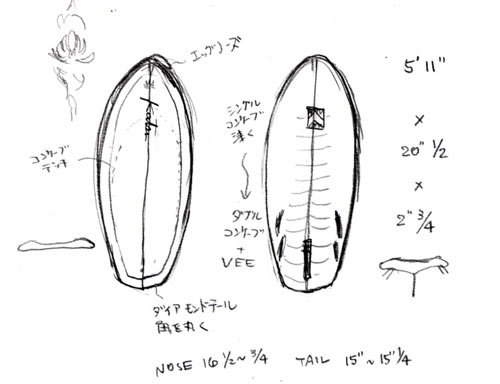 エッグノーズ
5' 11"
×
20" 1/2
×
2" 3/4
シングル
コンケーブ
浅く
ダブル
コンケーブ
+
VEE
コンケーブ
デッキ
ダイアモンドテール
角を丸く
NOSE 16 1/2 ~ 3/4 TAIL 15" ~ 15" 1/4